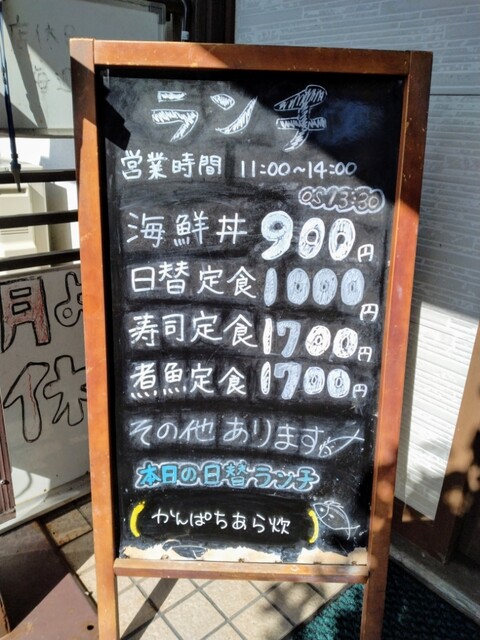 ランチ
営業時間 11:00~14:00
OS 13:30
海鮮丼 900円
日替定食 1000円
寿司定食 1700円
煮魚定食 1700円
その他あります
本日の日替ランチ
(かんぱちあら炊)
月よ
休